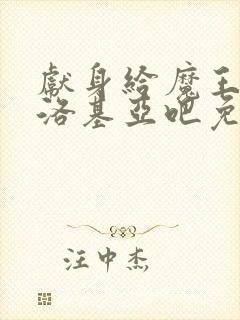 獻身給魔王
洛基亞吧免
汪中杰